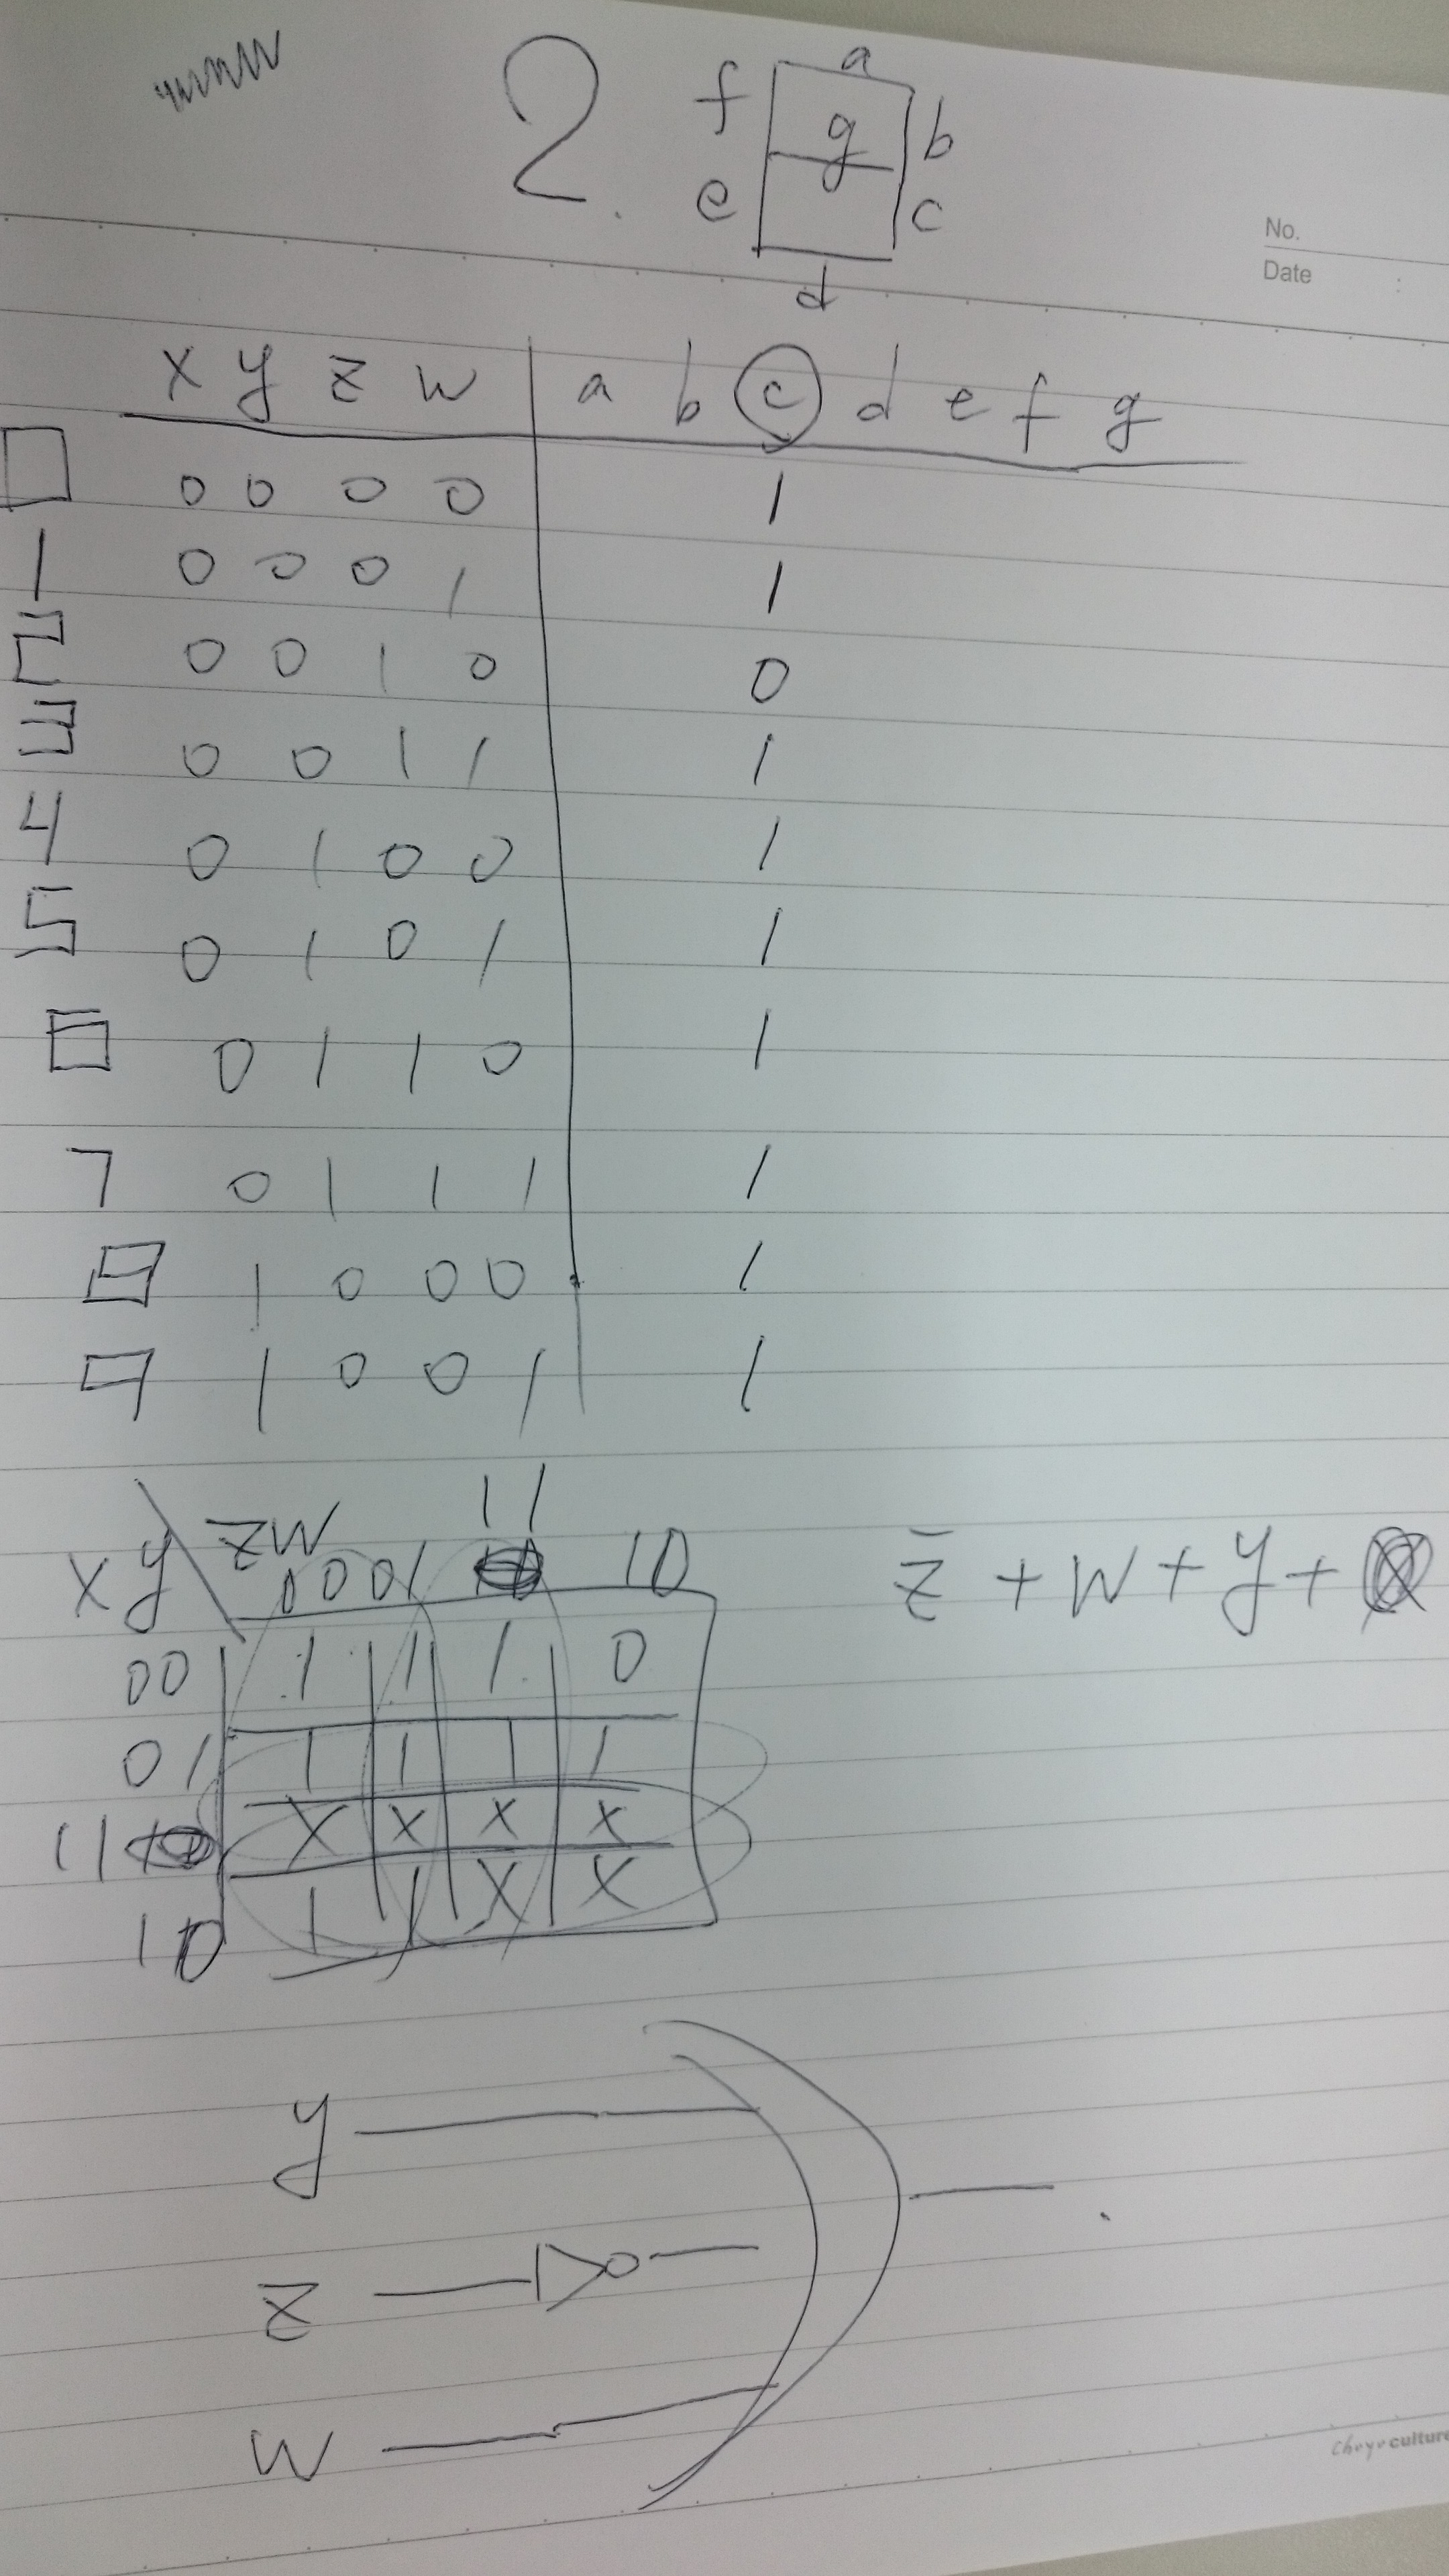 2.
a
f g b
e c
d
No.
Date :
x y z w a b c d e f g
0 0 0 0 0 1
1 0 0 0 1 1
2 0 0 1 0 0
3 0 0 1 1 1
4 0 1 0 0 1
5 0 1 0 1 1
6 0 1 1 0 1
7 0 1 1 1 1
8 1 0 0 0 1
9 1 0 0 1 1
xy zw 00 01 11 10
z̄ + w + y +
00 1 1 1 0
01 1 1 1 1
11 x x x x
10 1 1 x x
y
z
w
culture